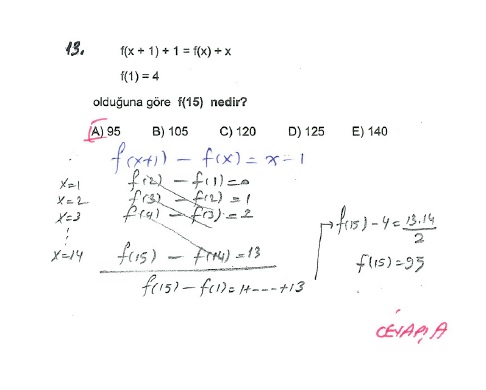 13.
f(x + 1) + 1 = f(x) + x
f(1) = 4
olduğuna göre f(15) nedir?
A) 95 B) 105 C) 120 D) 125 E) 140
f(x+1) - f(x) = x - 1
x=1 f(2) - f(1) = 0
x=2 f(3) - f(2) = 1
x=3 f(4) - f(3) = 2
⋮
x=14 f(15) - f(14) = 13
f(15) - f(1) = 1+----+13
f(15) - 4 = 13.14/2
f(15) = 95
CEVAP A